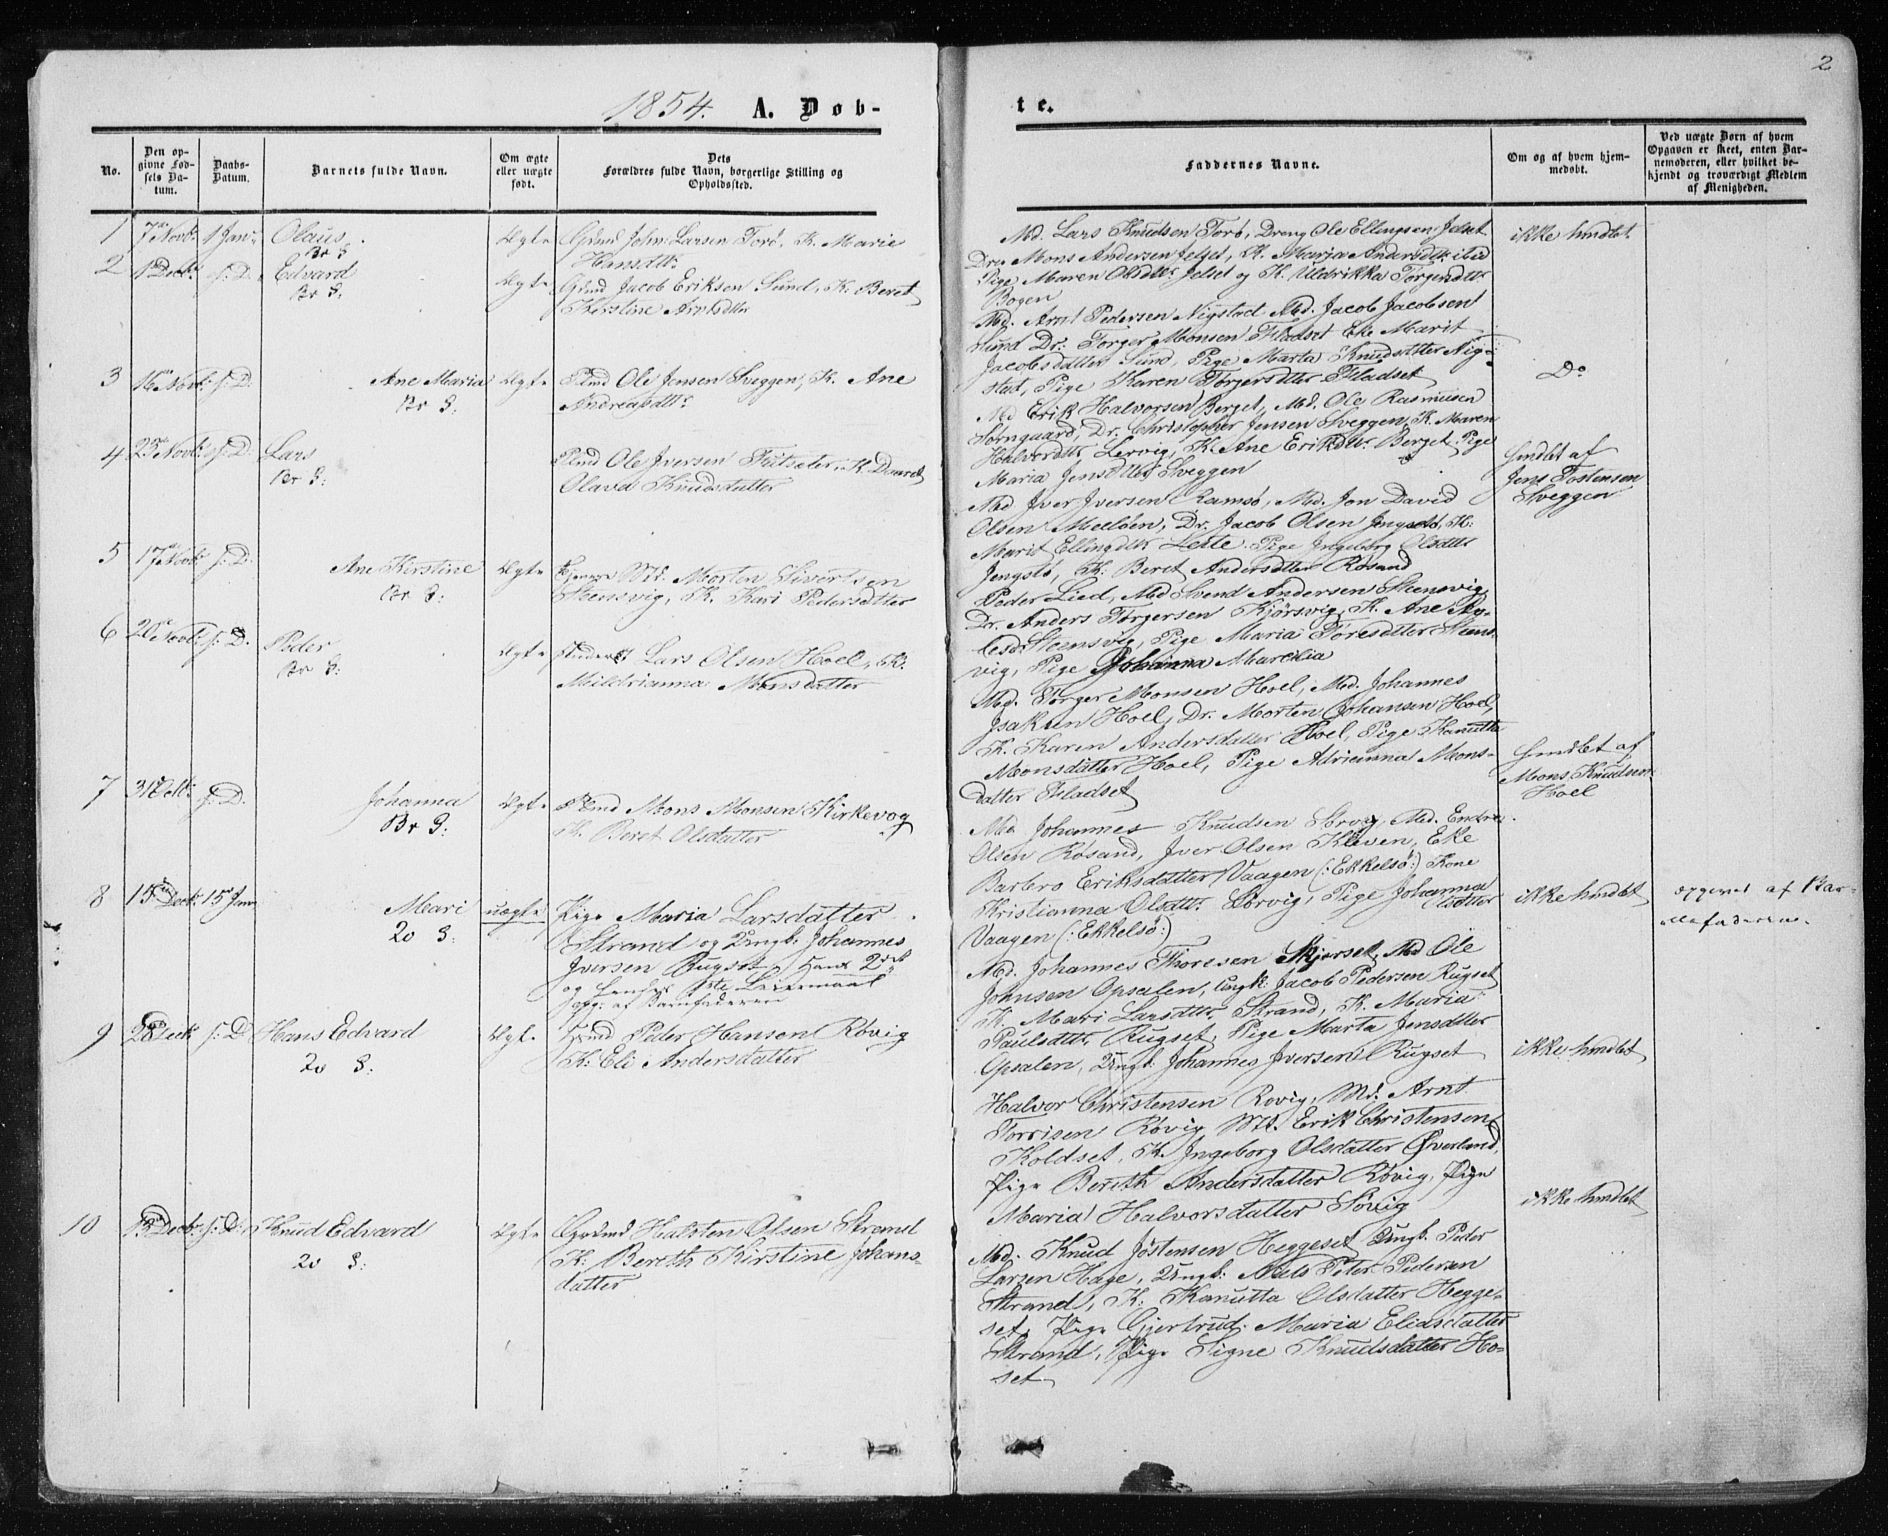 2
1854. A. Døb-
te.
No.
Den op-
givne Fød-
sels Da-
tum.
Daabs-
Datum.
Barnets fulde Navn.
Om ægte
eller uægte
født.
Dets
Forældres fulde Navn, borgerlige Stilling og
Opholdssted.
Faddernes Navne.
Om og af hvem hjem-
medøbt.
Ved uægte Børn af hvem
Opgaven er skeet, enten Bar-
nemoderen, eller hvilket be-
kjendt og troværdigt Medlem
af Menigheden.
1 7 Novbr 1 Janr Olaus Ægte Gmd John Larsen Torø, K. Marie
Br S
Hansdtr
Md. Lars Knudsen Torø, Dreng Ole Ellingsen Jelset
Dr. Mons Andersen Jelset, K. Maria Andersdtr ibid
Pige Maren Olsdtr Jelset og K. Uldrikka Torgersdtr
Bogen
ikke hmdbt
2 1 Decbr s. D. Edvard Ægte Gmd Jacob Eriksen Sund, K. Beret
Br S:
Kirstine Arntsdtter
Md. Arnt Pedersen Nigstad Md. Jacob Jacobsen
Sund Dr: Torger Monsen Fladset Eke Marit
Jacobsdatter Sund, Pige Marta Knudsdtter Nig-
stad, Pige Karen Torgersdtter Fladset
3 16 Novbr s. D. Ane Maria Ægte Plmd Ole Jensen Sveggen, K. Ane
Br S:
Andreasdtr
Md Erik Halvorsen Berget, Md. Ole Rasmusen
Dr. Christopher Jensen Sveggen, K. Maren
Halvordtr Lervig, K. Ane Eriksdtr Berget, Pige
Maria Jensdtter Sveggen
Do
4 25 Novbr s. D. Lars
Br S:
Plmd Ole Iversen K.
Olava Knudsdatter
Md Iver Iversen Ramsø, Md. Jon David
Olsen Meeløen, Dr. Jacob Olsen Jengstø, K:
Marit Ellingdtr Leite Pige Ingeborg Olsdtr
Jengstø, K. Beret Andersdtter Røsand
hmdbt af
Jens Tostensen
Sveggen
5 17 Novbr s. D. Ane Kirstine Ægte Md. Morten Sivertsen
Br S:
Steensvig, K. Kari Pedersdtter
Peder Lied, Md Svend Andersen Steensvig
Dr. Anders Torgersen Kjørsvig, K. Ane
Steensvig, Pige Maria Toresdtter Steens-
vig, Pige Johanna Marchia
6 20 Novbr s. D. Peder Ægte Lars Olsen Hoel, K:
Br S:
Mildrianna Monsdatter
Md. Torger Monsen Hoel, Md. Johannes
Isaksen Hoel, Dr. Morten Johansen Hoel,
K. Karen Andersdatter Hoel, Pige Kanutta
Monsdatter Hoel, Pige Adrianna Mons-
datter Fladset
hmdbt af
Mons Knudsen
Hoel
7 s. D. Johanna Ægte Plmd Mons Monsen Kirkevog
Br S:
K. Beret Olsdatter
Md Johannes Knudsen Md.
Olsen Røsand, Iver Olsen Kleven, Eke
Barbro Eriksdatter Vaagen (: Ekkelsø:) Kone
Kristianna Olsdtr Pige Johanna
Vaagen (: Ekkelsø:)
8 15 Decbr 15 Jan Mari uægte Pige Maria Larsdatter
20 S:
Strand og Ungk. Johannes
Iversen Rugset, Hans 2det
og hendes 1ste Leiermaal
opg. af Barnefaderen
Md. Johannes Thoresen Skjerset, Md Ole
Johnsen Opsalen, Ungk: Jacob Pedersen Rugset
K. Mari Larsdtr Strand, K. Maria
Paulsdtr Rugset, Pige Marta Jensdtter
Opsalen, Ungk. Johannes Iversen Rugset
ikke hmdbt
opgivet af Bar-
nefaderen
9 28 Decbr s. D Hans Edvard Ægte Hmd Peder Hansen Røvig
20 S:
K: Eli Andersdatter
Halvor Christensen Rovig, Md. Arnt
Torrisen Røvig Md. Erik Christensen
Koldset, K. Ingeborg Olsdatter Øverland,
Pige Bereth Andersdatter Røvig, Pige
Maria Halvorsdatter Søvig
ikke hmdbt
10 13 Decbr s. D. Knud Edvard Ægte Gmd Halsten Olsen Strand
20 S:
K: Bereth Kirstine Johans-
datter
Md. Knud Jøstensen Heggeset Ungk. Peder
Larsen Hage, Ungk: Niels Peter Pedersen
Strand, K: Kanutta Olsdatter Hegge-
set, Pige Gjertrud Maria Eliasdatter
Strand, Pige Signe Knudsdatter Ho-
set
ikke hmdbt